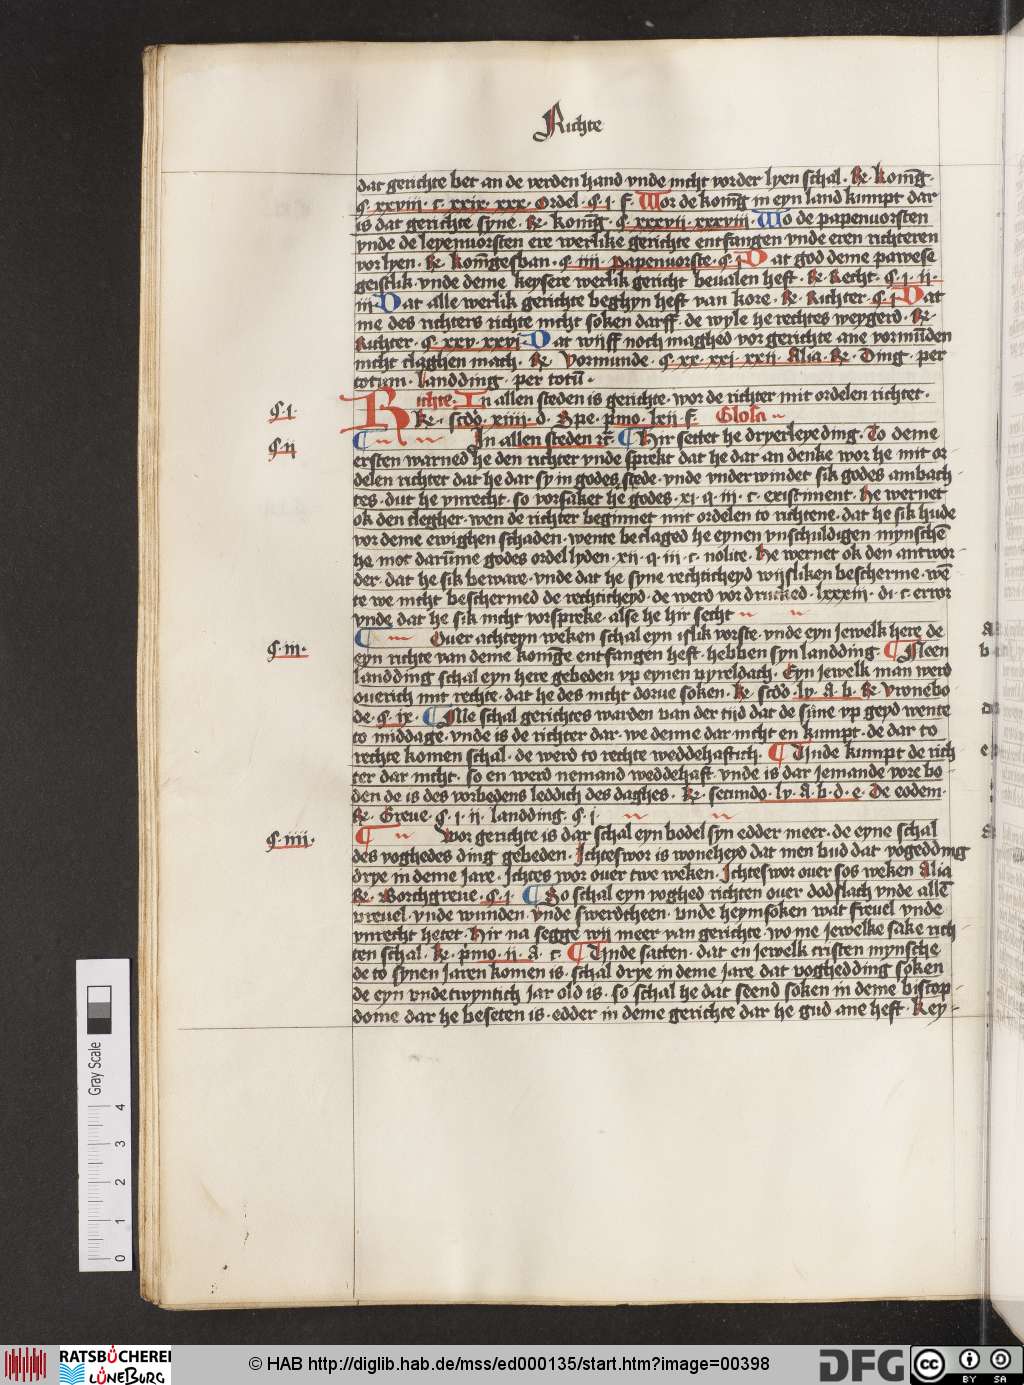 Richte
dat gerichte bet an de verden hand vnde nicht vorder lyen schal · Re · koni͞g ·
ꝯ · xxviii · c · xxix · xxx · Ordel · ꝯ · i · f · Wor de koni͞g in eyn land kumpt dar
is dat gerichte syne · Re · koni͞g · ꝯ · xxxvii · xxxviii · Wo de papenuorsten
vnde de leyenuorsten ere werlike gerichte entfangen vnde eren richteren
vor lyen · Re · koni͞gesban · ꝯ · iiii · papenuorste · ꝯ · i · Dat god deme pawese
geistlik · vnde deme keysere werlik gericht beualen heft · Re · Recht · ꝯ · i · ii ·
iii · Dat alle werlik gerichte beghyn heft van kore · Re · Richter · ꝯ · i · Dat
me des richters richte nicht soken darff · de wyle he rechtes weygerd · Re ·
Richter · ꝯ · xxv · xxvi · Dat wijff noch maghed vor gerichte ane vormu͞den
nicht claghen mach · Re · Vormunde · ꝯ · xx · xxi · xxii · Alia · Re · Ding · per
totum · Landding · per totu͞ ·
ꝯ · i ·
Richte · In allen steden is gerichte · wor de richter mit ordelen richtet ·
Re · scdo · xiiii · d · Spe · p̄mo · lxii · f · Glosa
ꝯ · ii
In allen steden ꝛc̄ · Hir settet he dryerleye ding · To deme
ersten warned he den richter vnde sprekt dat he dar an denke wor he mit or-
delen richtet dat he dar sy in godes stede · vnde vnderwindet sik godes ambach
tes · dut he vnrecht · so vorsaket he godes · xi · q · iii · c · existiment · He wernet
ok den clegher · wen de richter beginnet mit ordelen to richtene · dat he sik hude
vor deme ewighen schaden · wente beclaged he eynen vnschuldigen mynsche͞
he mot daru͞me godes ordel lyden · xii · q · iii · c · nolite · He wernet ok den antwor-
der · dat he sik beware · vnde dat he syne rechticheyd wijsliken bescherme · we͞
te we nicht beschermed de rechticheyd · de werd vordrucked · lxxxiii · di · c · error
vnde dat he sik nicht vorspreke · alse he hir secht
ꝯ · iii ·
Ouer achteyn weken schal eyn islik vorste · vnde eyn jewelk here de
eyn richte van deme koni͞ge entfangen heft · hebben syn landding · Neen
landding schal eyn here gebeden vp eynen vyreldach · Eyn jewelk man werd
ouerich mit rechte · dat he des nicht dorue soken · Re · scdo · lv · A · b · Re · Vronebo
de · ꝯ · ix · Alle schal gerichtes warden van der tijd dat de su͞ne vp geyd wente
to middage · vnde is de richter dar · we denne dar nicht en kumpt · de dar to
rechte komen schal · de werd to rechte weddehaftich · Vnde kumpt de rich
ter dar nicht · so en werd nemand weddehaft · vnde is dar jemande vore bo
den de is des vorbedens leddich des daghes · Re · secundo · lv · A · b · d · e · De eodem ·
Re · Greue · ꝯ · i · ii · landding · ꝯ · i ·
ꝯ · iiii ·
Wor gerichte is dar schal eyn bodel syn edder meer · de eyne schal
des voghedes ding gebeden · Ichteswor is woneheyd dat men bud dat vogedding
drye in deme jare · Ichtes wor ouer twe weken · Ichteswor ouer sos weken Alia
Re · Borchgreue · ꝯ · i · So schal eyn voghed richten ouer dodslach vnde alle͞
vreuel · vnde wunden · vnde swerdtheen · vnde heymsoken wat freuel vnde
vnrecht hetet · Hir na segge wij meer van gerichte wo me jewelke sake rich
ten schal · Re · p̄mo · ii · A · c · Vnde satten · dat en jewelk cristen mynsche
de to synen jaren komen is · schal drye in deme jare dat voghedding soken
de eyn vndetwyntich jar old is · so schal he dat seend soken in deme biscop-
dome dar he beseten is · edder in deme gerichte dar he gud ane heft · Key-
Gray Scale
0 1 2 3 4
RATSBÜCHEREI
LÜNEBURG
© HAB http://diglib.hab.de/mss/ed000135/start.htm?image=00398
DFG
cc
BY SA